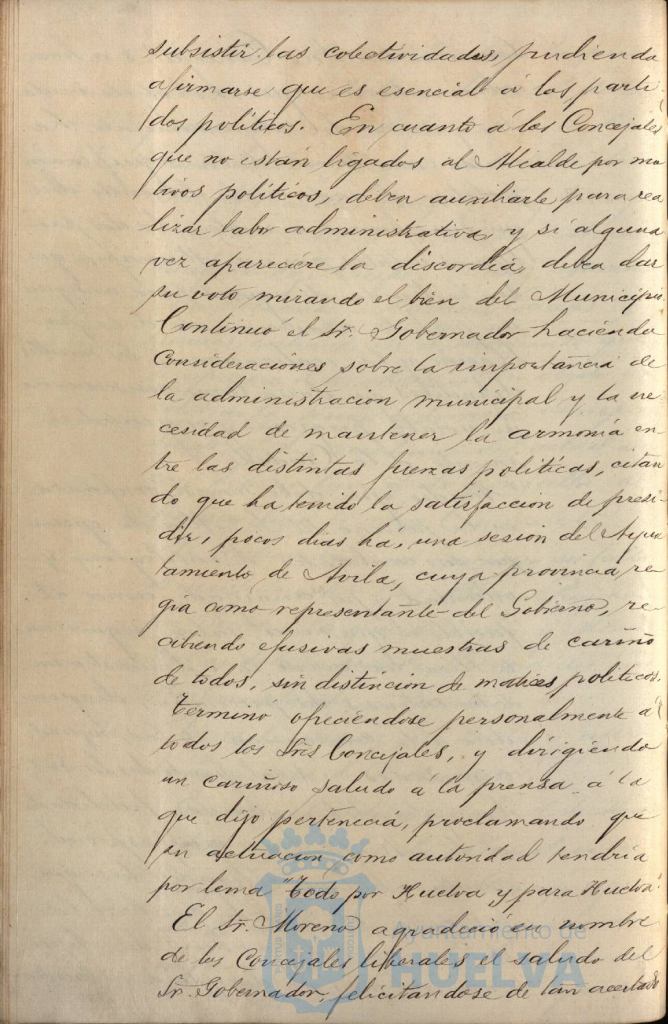 subsistir las colectividades, pudiendo
afirmarse que es esencial á los parti
dos políticos. En cuanto á los Concejales
que no están ligados al Alcalde por mo
tivos políticos, deben auxiliarle para rea
lizar labor administrativa, y si alguna
vez apareciere la discordia, deben dar
su voto mirando el bien del Municipio.
Continuó el Sr. Gobernador haciendo
consideraciones sobre la importancia de
la administracion municipal y la ne
cesidad de mantener la armonía en
tre las distintas fuerzas políticas, citan
do que ha tenido la satisfaccion de presi-
dir, pocos dias há, una sesion del Ayun
tamiento de Avila, cuya provincia re
gía como representante del Gobierno, re
cibiendo efusivas muestras de cariño
de todos, sin distincion de matices políticos.
Terminó ofreciéndose personalmente á
todos los Sres Concejales, y dirigiendo
un cariñoso saludo á la prensa á la
que dijo pertenecia, proclamando que
su actuacion como autoridad tendria
por lema "Todo por Huelva y para Huelva".
El Sr. Moreno agradeció en nombre
de los Concejales liberales el saludo del
Sr. Gobernador, felicitandose de tan acertado
Ayuntamiento de
HUELVA